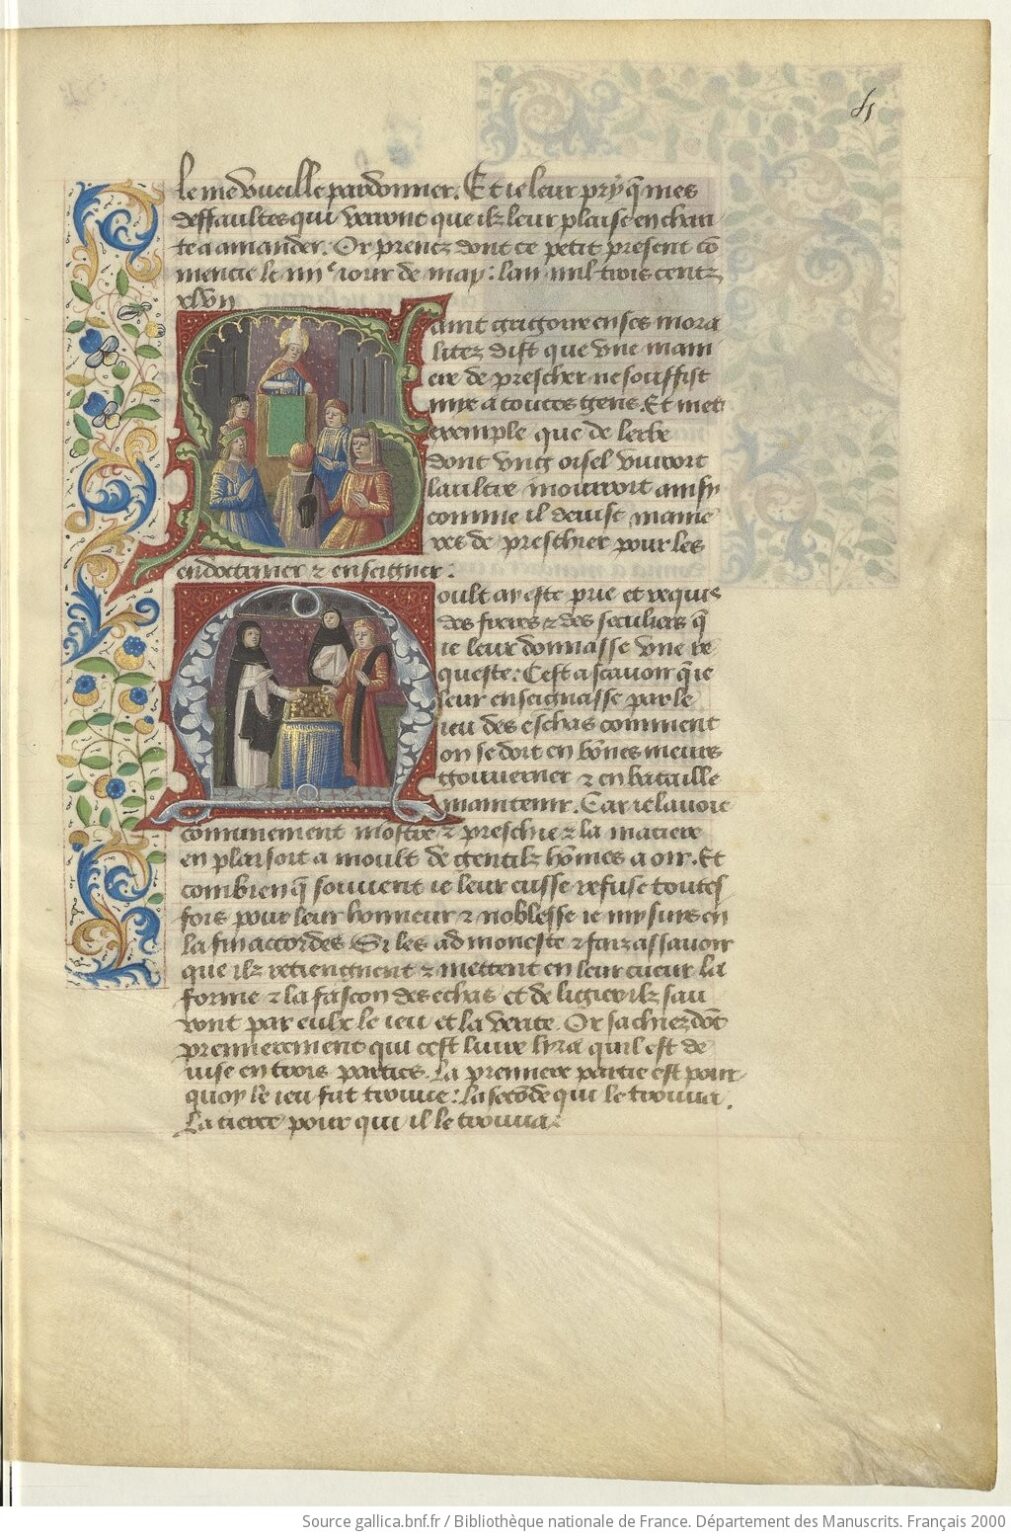 le me vueille pardonner. Et ie leur pry q̄ mes
deffaultes qui verront que ilz leur plaise en chari
te a amander. Or prenez dont ce petit present cō
mencie le iiiie iour de may: lan mil trois centz
xlvii
Saint gregoire en ses mora
litez dist que vne mani
ere de prescher ne souffist
mye a toutes gens. Et met
exemple que de lerbe
dont vng oisel viuroit
laultre mourroit ainsy
comme il deuise manie
res de preschier pour les
endoctriner ⁊ enseigner.
Moult ay este prie et requis
des freres ⁊ des seculiers q̄
ie leur donnasse vne re
queste: Cest a scauoir q̄ ie
leur enseignasse par le
ieu des eschas comment
on se doit en bōnes meurs
gouuerner ⁊ en bataille
maintenir. Car ie lauoie
communement mostre ⁊ preschie ⁊ la matiere
en plaisoit a moult de gentilz hōmes a oir. Et
combien q̄ souuent ie leur eusse refuse toutes
fois pour leur honneur ⁊ noblesse ie my suys en
la fin accordes Si les admoneste ⁊ faiz assauoir
que ilz retiengnent ⁊ mettent en leur cueur la
forme ⁊ la fascon des echas et de ligier ilz sau
ront par eulx le ieu et la verite. Or sachiez dōt
premierement qui cest liure lyra quil est de
uise en trois parties. La premiere partie est pour
quoy le ieu fut trouue: La secōde qui le trouua.
La tierce pour qui il le trouua.
Source gallica.bnf.fr / Bibliothèque nationale de France. Département des Manuscrits. Français 2000